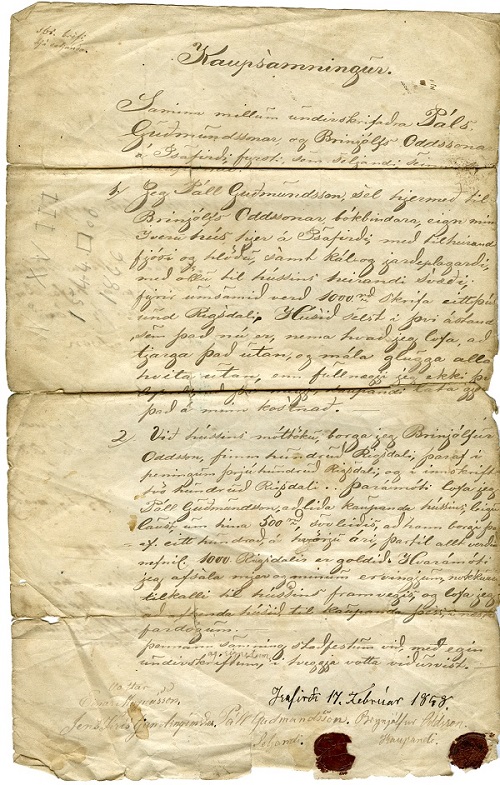 Kaupsamningur.
Saminn millum undirskrifadra Páls
Gudmundssonar, og Brinjólfs Oddssonar
á Isafirdi, fyrsti, sem seljandi sem
1, Jeg Páll Gudmundsson, sel hjermed til
Brinjólfs Oddssonar, bókbindara, eign mín
Ivero hús hjer á Isafirdi, med tilheirand
fjósi og hlödu, samt kál og gardplagardi,
med öllu til hússins heirandi svædi,
fyrir umsamid verd 1000 rd skrifa eitt þús
und Rigsdali. Húsid selst í því ástand
sem það nú er, nema hvad jeg lofa, ad
tjarga það utan, og mála glugga alla
hvíta utan, enn fullnægi jeg ekki þ
það á minn kostnad.
2, Vid hússins móttöku, borga jeg Brinjólfur
Oddsson, fimm hundrud Rigsdali, þaraf í
peningum þrjú hundrud Rigsdali, og í innskrift
tvö hundrud Rigsdali. Þarámóti lofa jeg
Páll Gudmundsson, ad lída kaupanda hússins leigu
laust um hina 500 rd, svoleidis, ad hann borgi
eitt hundrad á hvörju ári, þartil allt verdid
nefnil. 1000 Rigsdalir er goldid. Hvarámóti
jeg afsala mjer og mínum ervingjum, nokkurt
tilkalli til hússins framvegis, og lofa jeg
ad afhenda húsid til kaupanda
fardögum.
þennann samning stadfestum vid, med egin
undirskriftum, í tveggja votta vidurvist.
Isafirdi 17. Februar 1848.
Páll Gudmundsson. Brynjólfur Oddson.
Seljandi. Kaupandi.